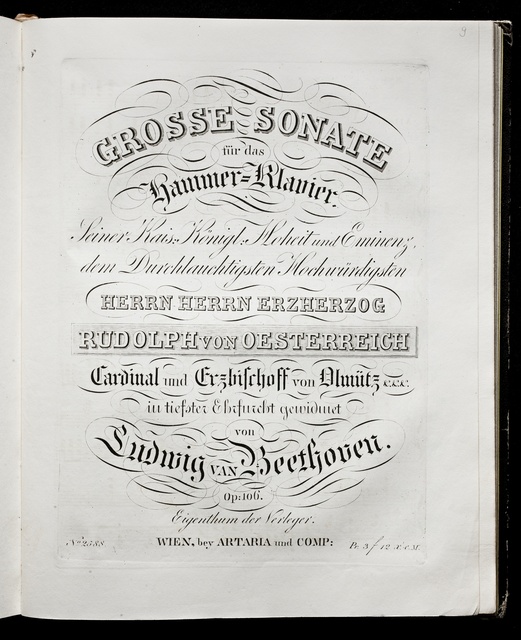 9
GROSSE SONATE
für das
Hammer=Klavier.
Seiner Kais: Königl: Hoheit und Eminenz,
dem Durchlauchtigsten Hochwürdigsten
HERRN HERRN ERZHERZOG
RUDOLPH VON OESTERREICH
Cardinal und Erzbischoff von Olmütz &c.&c.&c.
in tiefster Ehrfurcht gewidmet
von
Ludwig VAN Beethoven.
Op: 106.
Eigenthum der Verleger.
No. 2588. WIEN, bey ARTARIA und COMP: